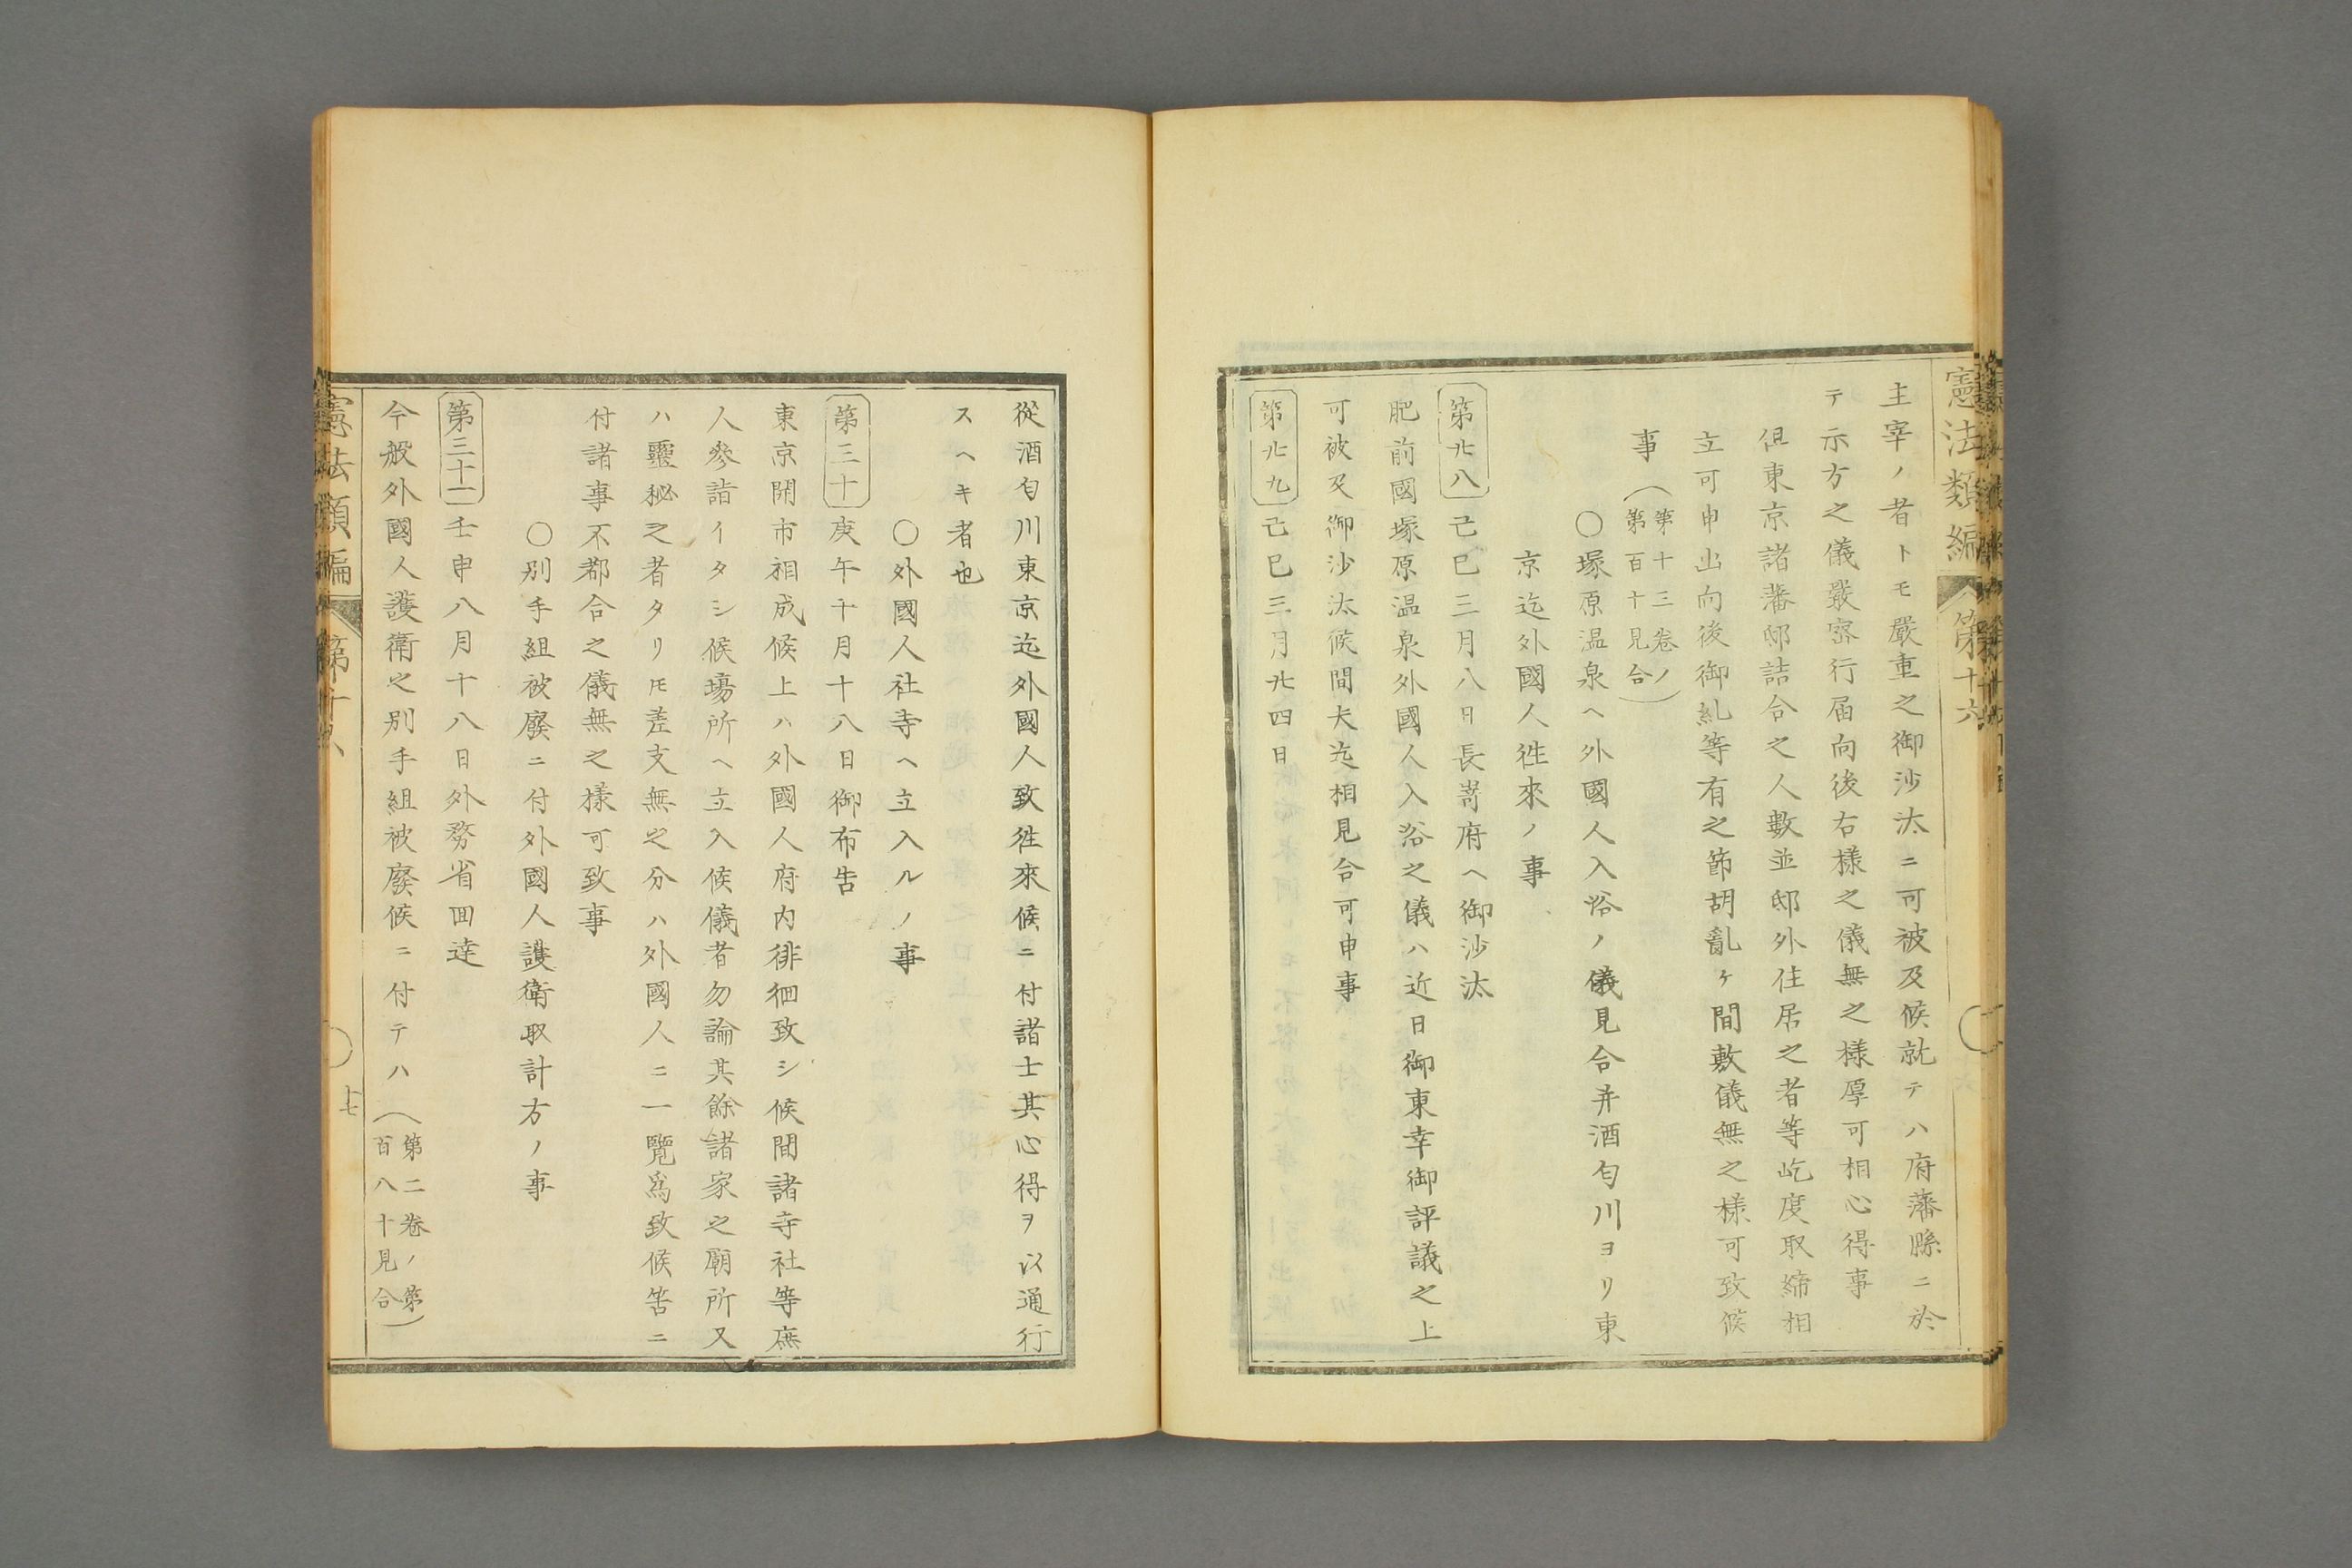 憲法類編 第十六
主宰ノ者トモ嚴重之御沙汰ニ可被及候就テハ府藩縣ニ於
テ示方之儀嚴密行届向後右樣之儀無之樣厚可相心得事
但東京諸藩邸詰合之人數並邸外住居之者等屹度取締相
立可申出向後御糺等有之節胡亂ケ間敷儀無之樣可致候
事(第十三卷ノ
第百十見合)
〇塚原温泉ヘ外國人入浴ノ儀見合并酒匂川ヨリ東
京迄外國人徃來ノ事
第廿八 己巳三月八日長嵜府ヘ御沙汰
肥前國塚原温泉外國人入浴之儀ハ近日御東幸御評議之上
可被及御沙汰候間夫迄相見合可申事
第廿九 己巳三月廿四日
從酒匂川東京迄外國人致徃來候ニ付諸士其心得ヲ以通行
スヘキ者也
〇外國人社寺ヘ立入ルノ事
第三十 庚午十月十八日御布告
東京開市相成候上ハ外國人府内徘徊致シ候間諸寺社等庶
人參詣イタシ候塲所ヘ立入候儀者勿論其餘諸家之廟所又
ハ靈秘之者タリ𪜈差支無之分ハ外國人ニ一覽爲致候筈ニ
付諸事不都合之儀無之樣可致事
〇別手組被廢ニ付外國人護衛取計方ノ事
第三十一 壬申八月十八日外務省回達
今般外國人護衛之別手組被廢候ニ付テハ(第二卷ノ第
百八十見合)
憲法類編 第十六
十七